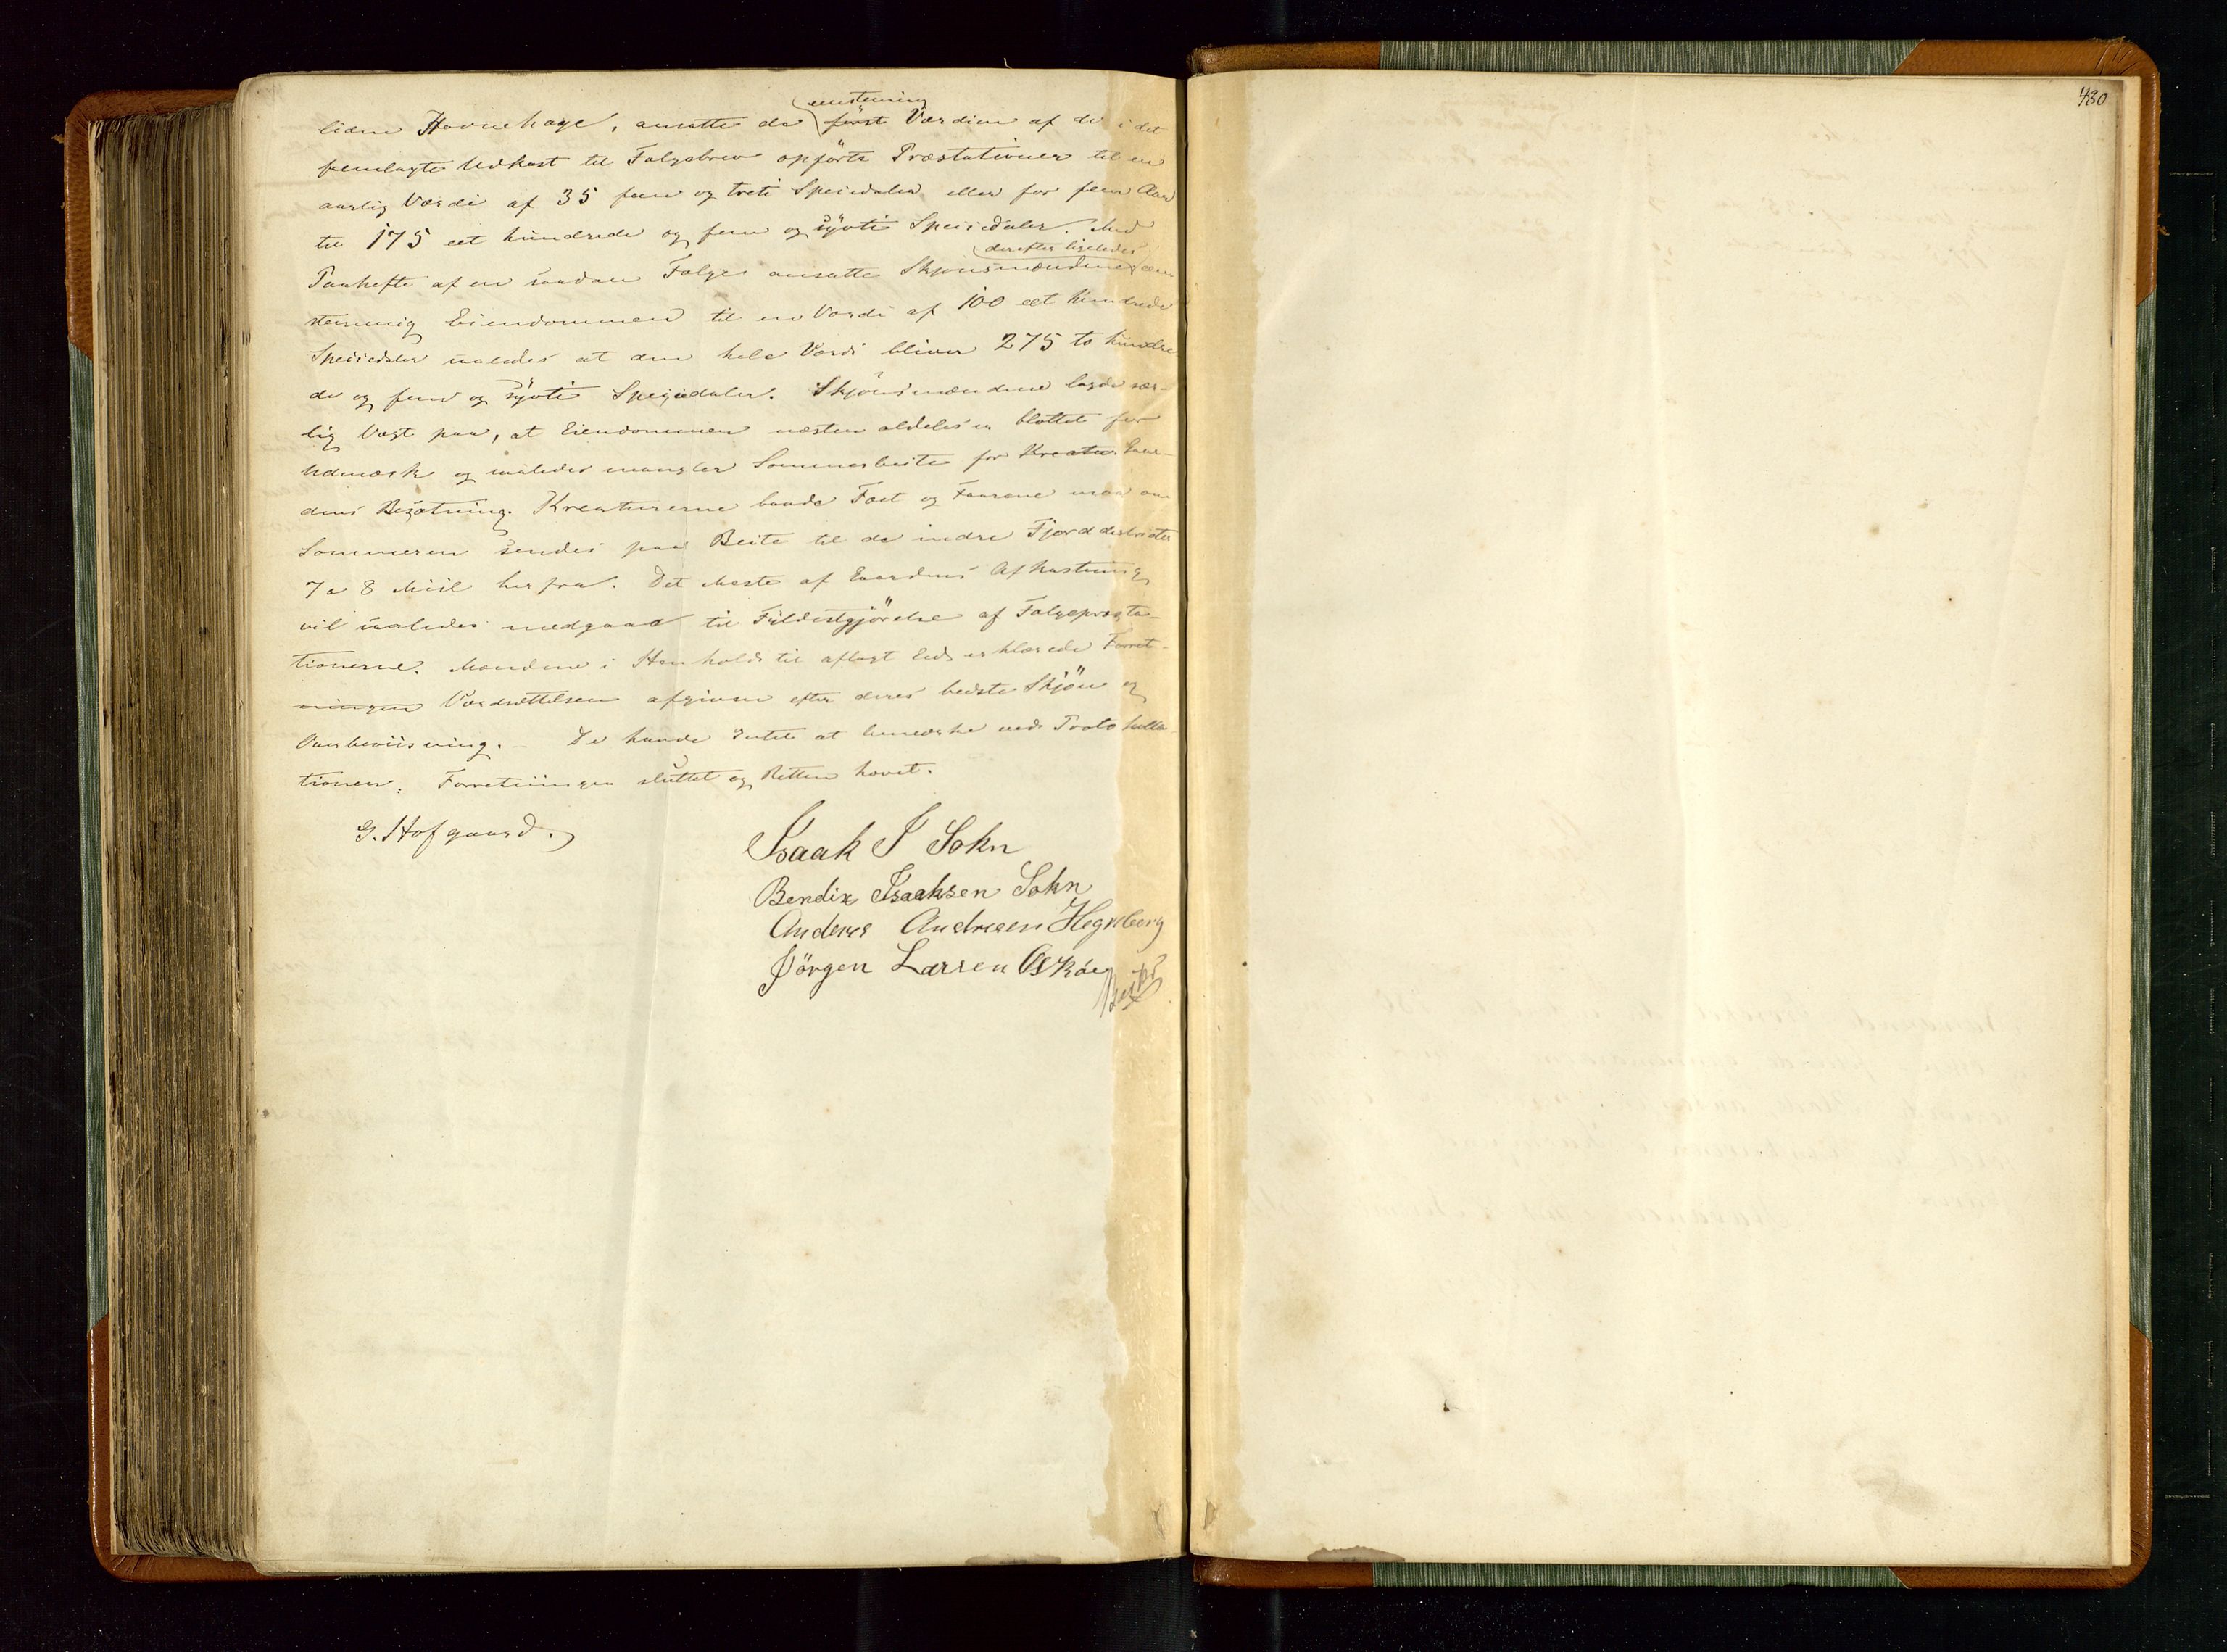 eenstemig
liden Havnehage, ansatte da först Værdien af de i det
fremlagte Udkast til Folgebrev opförte Præstationer til en
aarlig Værdi af 35 fem og treti Speciedaler eller for fem Aar
til 175 eet hundrede og fem og syvti Speciedaler. Med
derefter ligeledes
Paahefte af en saadan Folge ansatte Skjönsmændene een
stemmig Eiendommen til en Værdi af 100 eet hundrede
Speciedaler saaledes at den hele Værdi bliver 275 to hundre
de og fem og syvti Speciedaler. Skjönsmændene lagde sær-
lig Vægt paa, at Eiendommen næsten aldeles er blottet for
Udmark og saaledes mangler Sommerbeite for Kreatur Gaar-
dens Besætning. Kreaturerne baade Fæet og Faarene maa om
Sommeren sendes paa Beite til de indre Fjorddistricter
7 a 8 Miil herfra. Det Meste af Gaardens Afkastning
vil saaledes medgaae til Fyldestgjörelse af Folgepræsta-
tionerne. Mændene i Henhold til aflagt Eed erklærede Forret-
ningen Værdsættelsen afgiven efter deres bedste Skjön og
Overbeviisning. – De havde Intet at bemærke ved Protokolla
tionen. Forretningen sluttet og Retten hævet.
G. Hofgaard.
Isaak I Sokn
Bendix Isaaksen Sokn
Anders Andresen Hegreberg
Jörgen Larsen Asköe
430